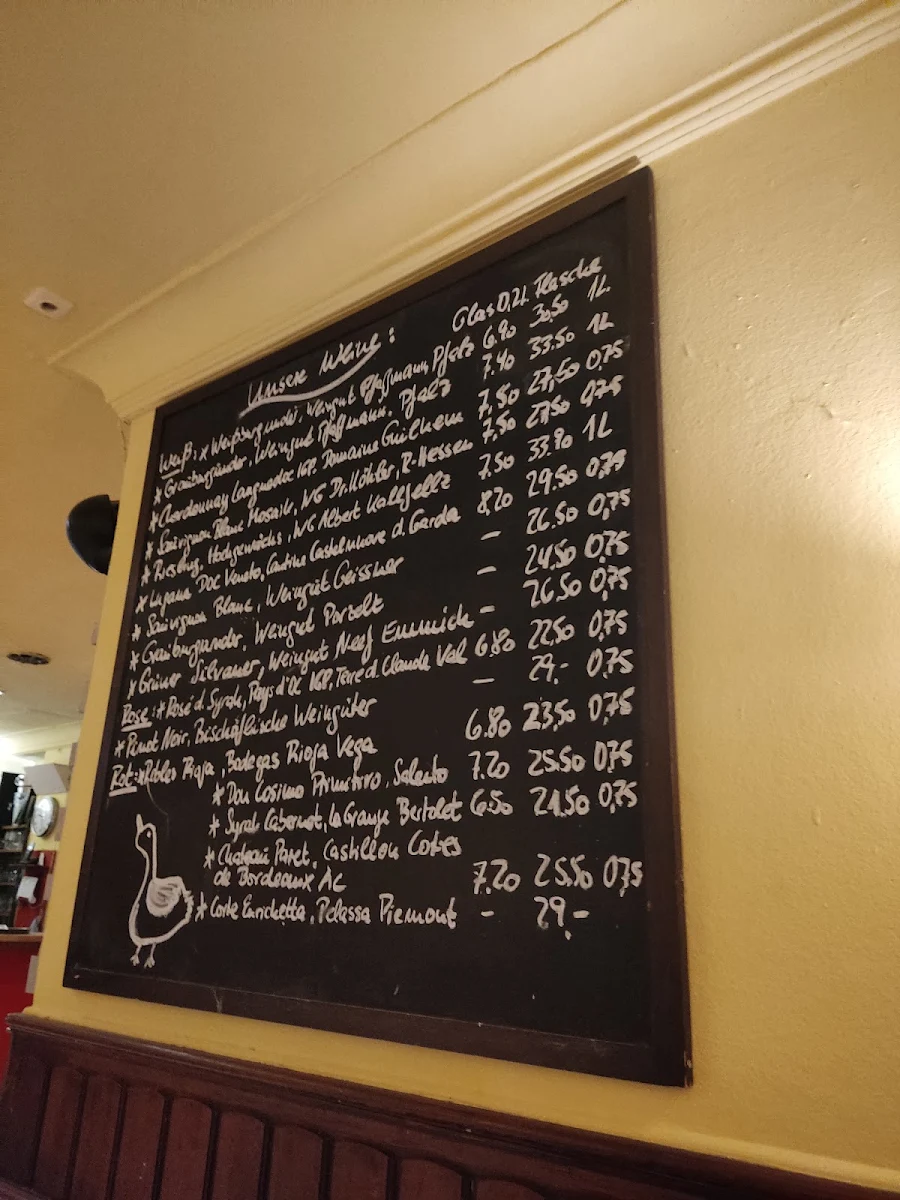 Unsere Weine: Glas 0,2L Flasche
Weiß: * Weißburgunder, Weingut Pfaffmann Pfalz 6.90 30,50 1L
* Grauburgunder, Weingut Pfaffmann. Pfalz 7.40 33.50 1L
* Chardonnay Languedoc IGP. Domaine Guilhem 7,50 27,50 0,75
* Sauvignon Blanc Mosaik, WG Dr. Köhler, R-Hessen 7.50 27.50 0,75
* Riesling, Hochgewächs, WG Albert Kallfellz 7.50 33.90 1L
* Lugana DOC Veneto, Cantina Castelnuovo d. Garda 8.20 29.50 0,75
* Sauvignon Blanc, Weingut Geissner - 26.50 0,75
* Grauburgunder, Weingut Porzelt - 24.50 0,75
* Grüner Silvaner, Weingut Neef Emmich - 26.50 0,75
Rose: * Rosé d. Syrah, Pays d'Oc IGP, Terre d. Claude Val 6.80 22,50 0,75
* Pinot Noir, Bischöfliche Weingüter - 29.- 0,75
Rot: * Robles Rioja, Bodegas Rioja Vega 6.80 23,50 0,75
* Don Cosimo Primitivo, Salento 7.20 25.50 0,75
* Syrah Cabernet, la Grange Bertolet 6.50 21.50 0,75
* Chateau Paret, Castillon Cotes
de Bordeaux AC 7.20 25.50 0,75
* Corte Enrichetta, Pelassa Piemont - 29.-